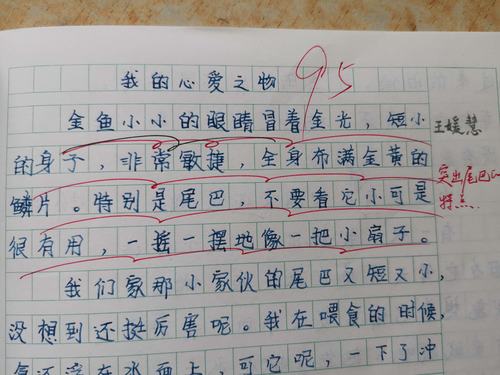 95
我的心爱之物
金鱼小小的眼睛冒着金光，短小
王媛慧
的身子，非常敏捷，全身布满金黄的
突出尾巴的
鳞片。特别是尾巴，不要看它小可是
特点
很有用，一摇一摆地像一把小扇子。
我们家那小家伙的尾巴又短又小，
没想到还挺厉害呢。我在喂食的时候，
在水面上，可它呢，一下了冲